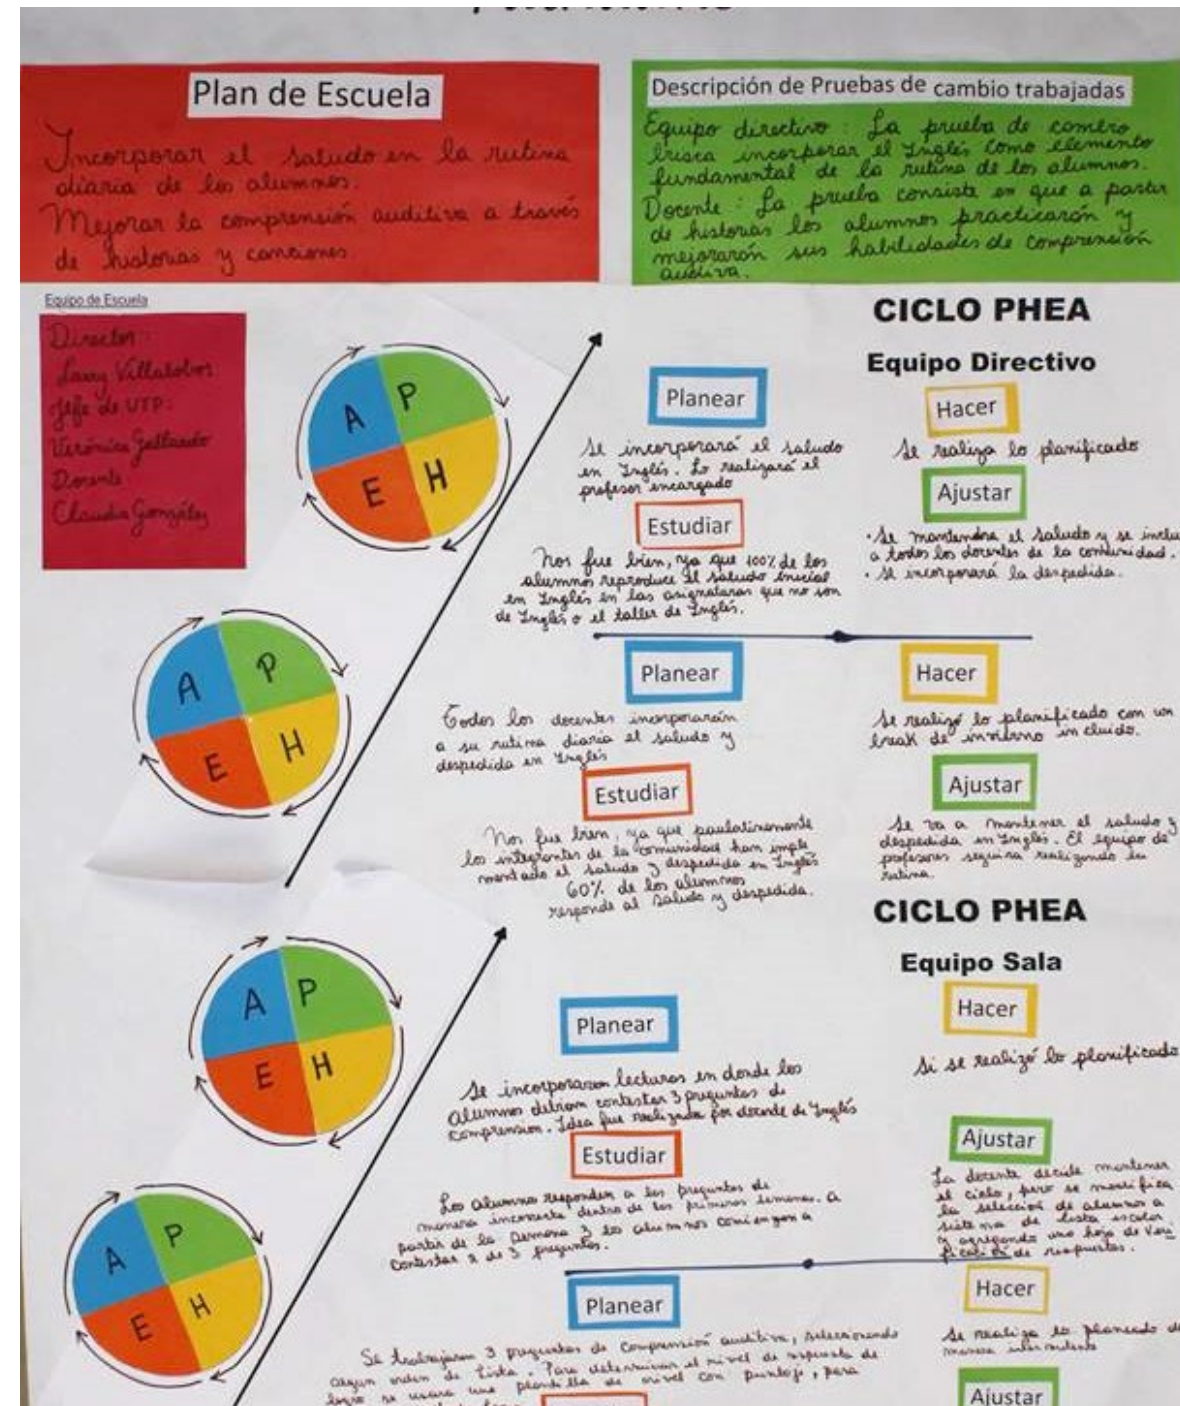 Plan de Escuela
Incorporar el saludo en la rutina
diaria de los alumnos.
Mejorar la comprensión auditiva a través
de historias y canciones.
Descripción de Pruebas de cambio trabajadas
Equipo directivo: La prueba de cambio
busca incorporar el Inglés como elemento
fundamental de la rutina de los alumnos.
Docente: La prueba consiste en que a partir
de historias los alumnos practicarán y
mejorarán sus habilidades de comprensión
auditiva.
Equipo de Escuela
Director:
Larry Villalobos
Jefe de UTP:
Verónica Gallardo
Docente
Claudia González
A P
E H
A P
E H
CICLO PHEA
Equipo Directivo
Planear
Se incorporará el saludo
en Inglés. Lo realizará el
profesor encargado
Hacer
Se realiza lo planificado
Estudiar
Nos fue bien, ya que 100% de los
alumnos reproduce el saludo inicial
en Inglés en las asignaturas que no son
de Inglés o el taller de Inglés.
Ajustar
• Se mantendrá el saludo y se inclu
a todos los docentes de la comunidad.
• Se incorporará la despedida.
Planear
Todos los docentes incorporarán
a su rutina diaria el saludo y
despedida en Inglés
Hacer
Se realizó lo planificado con un
break de invierno incluido.
Estudiar
Nos fue bien, ya que paulatinamente
los integrantes de la comunidad han imple
mentado el saludo y despedida en Inglés
60% de los alumnos
responde al saludo y despedida.
Ajustar
Se va a mantener el saludo y
despedida en Inglés. El equipo de
profesores seguira realizando la
rutina.
A P
E H
A P
E H
CICLO PHEA
Equipo Sala
Planear
Se incorporaron lecturas en donde los
alumnos debian contestar 3 preguntas de
comprension. Idea fue realizada por docente de Inglés
Hacer
Si se realizó lo planificado
Estudiar
Los alumnos responden a las preguntas de
manera incorrecta dentro de las primeras semanas. A
partir de la semana 3 los alumnos comienzan a
contestar 2 de 3 preguntas.
Ajustar
La docente decide mantener
el ciclo, pero se modifica
la selección de alumnos a
sistema de lista escolar
y agregando una hoja de Veri
ficación de respuestas.
Planear
Se trabajaron 3 preguntas de comprensión auditiva, seleccionando
segun orden de lista. Para determinar el nivel de respuesta de
logro se usara una plantilla de nivel con puntaje, para
Hacer
Se realiza lo planeado de
manera intermitente
Ajustar